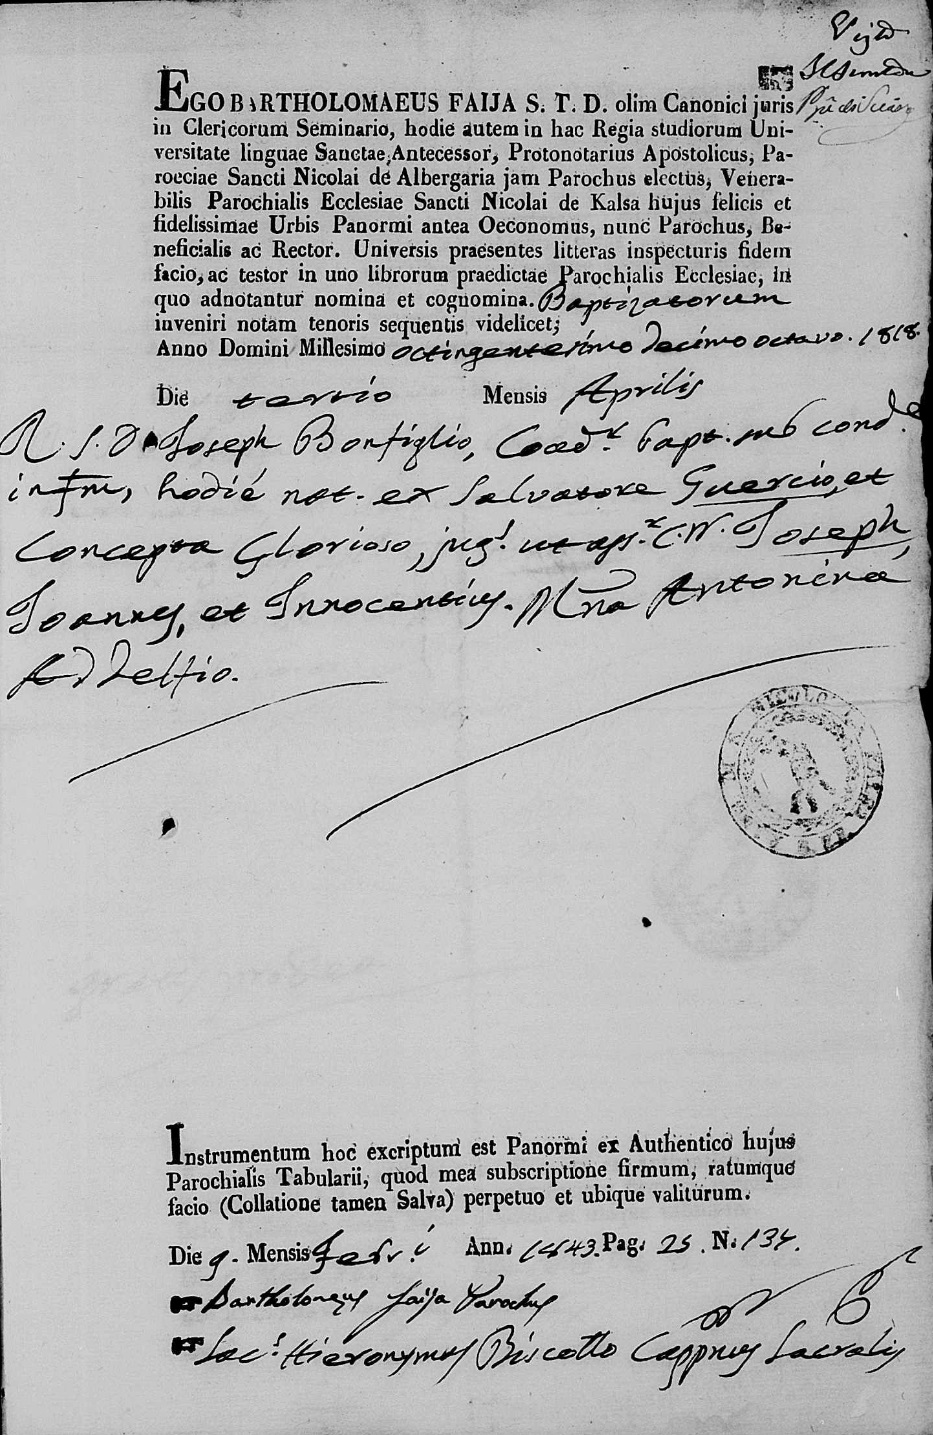 EGO BARTHOLOMAEUS FAIJA S. T. D. olim Canonici juris
in Clericorum Seminario, hodie autem in hac Regia studiorum Uni-
versitate linguae Sanctae, Antecessor, Protonotarius Apostolicus, Pa-
roeciae Sancti Nicolai de Albergaria jam Parochus electus, Venera-
bilis Parochialis Ecclesiae Sancti Nicolai de Kalsa hujus felicis et
fidelissimae Urbis Panormi antea Oeconomus, nunc Parochus, Be-
neficialis ac Rector. Universis praesentes litteras inspecturis fidem
facio, ac testor in uno librorum praedictae Parochialis Ecclesiae, in
quo adnotantur nomina et cognomina. Baptizatorum
inveniri notam tenoris sequentis videlicet;
Anno Domini Millesimo octingentesimo decimo octavo. 1818.
Die tertio Mensis Aprilis
R. S. D. Joseph Bonfiglio, Coad.r bapt. sub cond.e
infm, hodié nat. ex Salvatore Guercio, et
Concepta Glorioso, jug.i C.N. Joseph,
Joannes, et Innocentius. Antonina
Addelfio.
Instrumentum hoc excriptum est Panormi ex Authentico hujus
Parochialis Tabularii, quod mea subscriptione firmum, ratumque
facio (Collatione tamen Salva) perpetuo et ubique valiturum.
Die 9. Mensis Febr.i Ann. 1843. Pag. 25. N. 134.
Bartholomeus Faija Parochus
Sac.s Hieronymus Biscotto Cappnus Sacralis